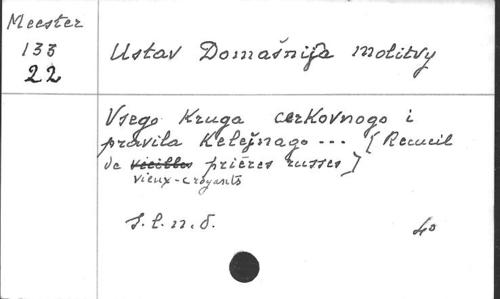 Meester
133
22
Ustav Domašnija molitvy
Vsego Kruga cerkovnogo i
pravila Kelejnago ... [Recueil
de vieilles prières russes]
vieux-croyants
s.l.n.d.
4o